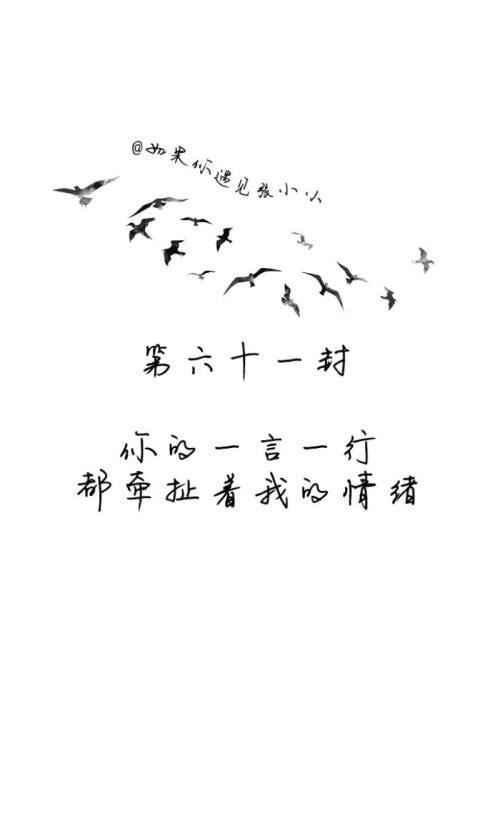 @如果你遇见张小小
第六十一封
你的一言一行
都牵扯着我的情绪